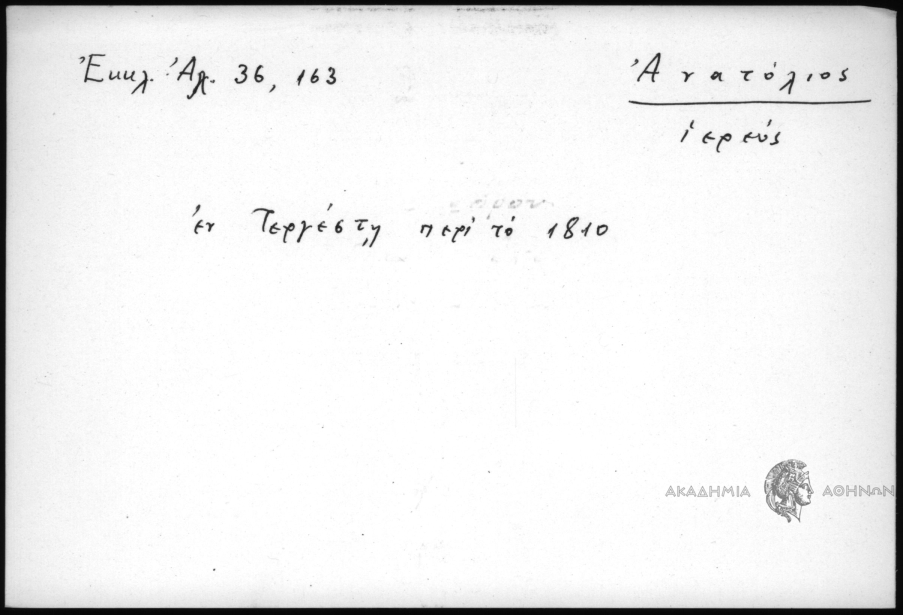 Ἐκκλ. Ἀλ. 36, 163
Ἀνατόλιος
ἱερεύς
ἐν Τεργέστῃ περὶ τὸ 1810
ΑΚΑΔΗΜΙΑ ΑΘΗΝΩΝ